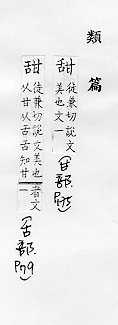 類篇
甜 徒兼切説文
美也文一
(甘部. P75)
甜 徒兼切説文美也
从甘从舌舌知甘
者文
一
(舌部. P79)